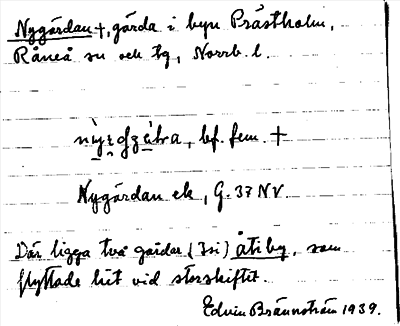 Nygärdan +, gärda i byn Prästholm,
Råneå sn och tg, Norrb. l.
bf. fem. +
Nygärdan ek, G. 37 NV
Där ligga två gårdar (3si) åti by, som
flyttade hit vid storskiftet.
Edvin Brännström 1939.